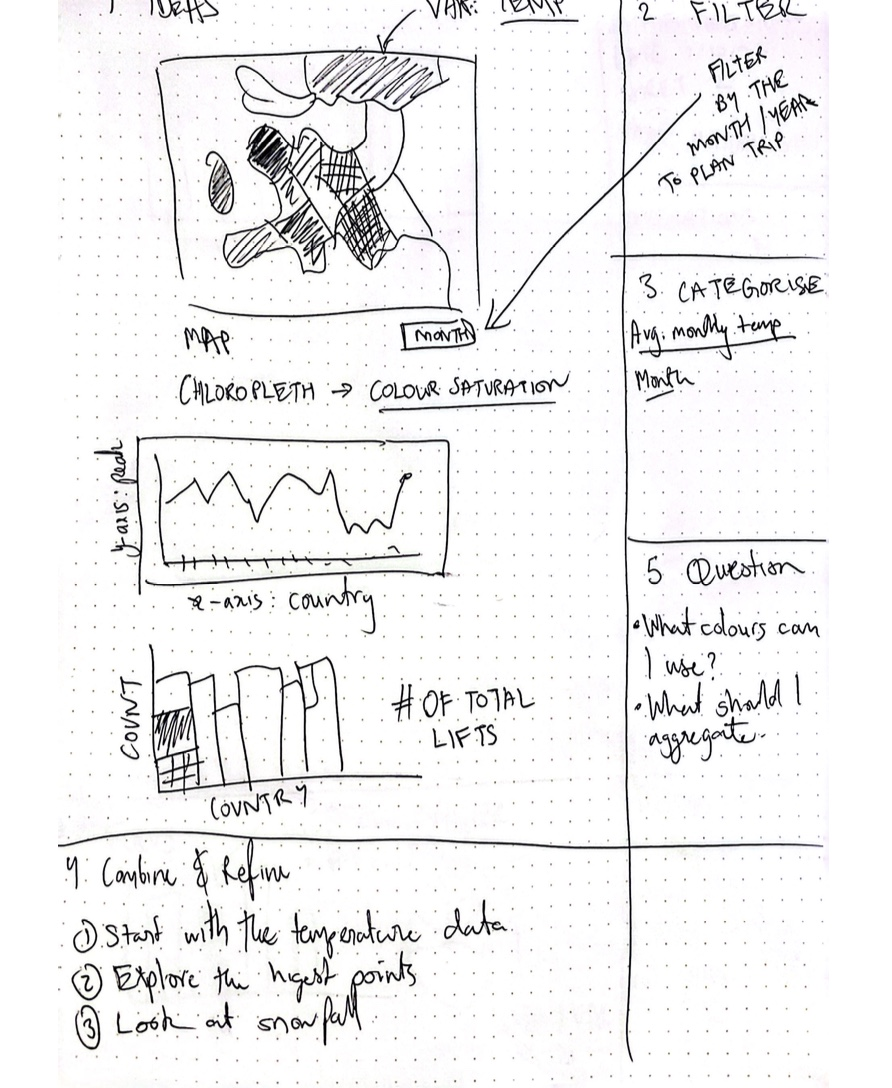 1 IDEAS
VAR: TEMP
MAP
MONTH
CHLOROPLETH → COLOUR SATURATION
y-axis: peak
x-axis: country
COUNT
COUNTRY
# OF TOTAL
LIFTS
2 FILTER
FILTER
BY THE
MONTH / YEAR
TO PLAN TRIP
3 CATEGORISE
Avg. monthly temp
Month
5 Question
• What colours can
I use?
• What should I
aggregate.
4 Combine & Refine
① Start with the temperature data
② Explore the higest points
③ Look at snowfall